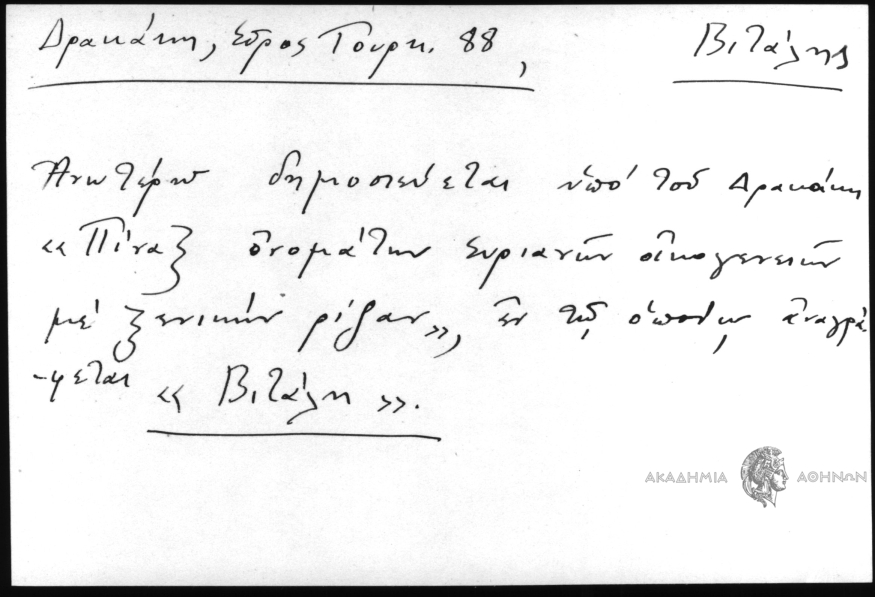 Δρακάκη, Σύρος Τουρκ. 88, Βιτάλης
Ἀνωτέρω δημοσιεύεται ὑπὸ τοῦ Δρακάκη
«Πίναξ ὀνομάτων Συριανῶν οἰκογενειῶν
μὲ ξενικὴν ρίζαν», ἐν τῷ ὁποίῳ ἀναγρά-
-φεται «Βιτάλη».
ΑΚΑΔΗΜΙΑ ΑΘΗΝΩΝ